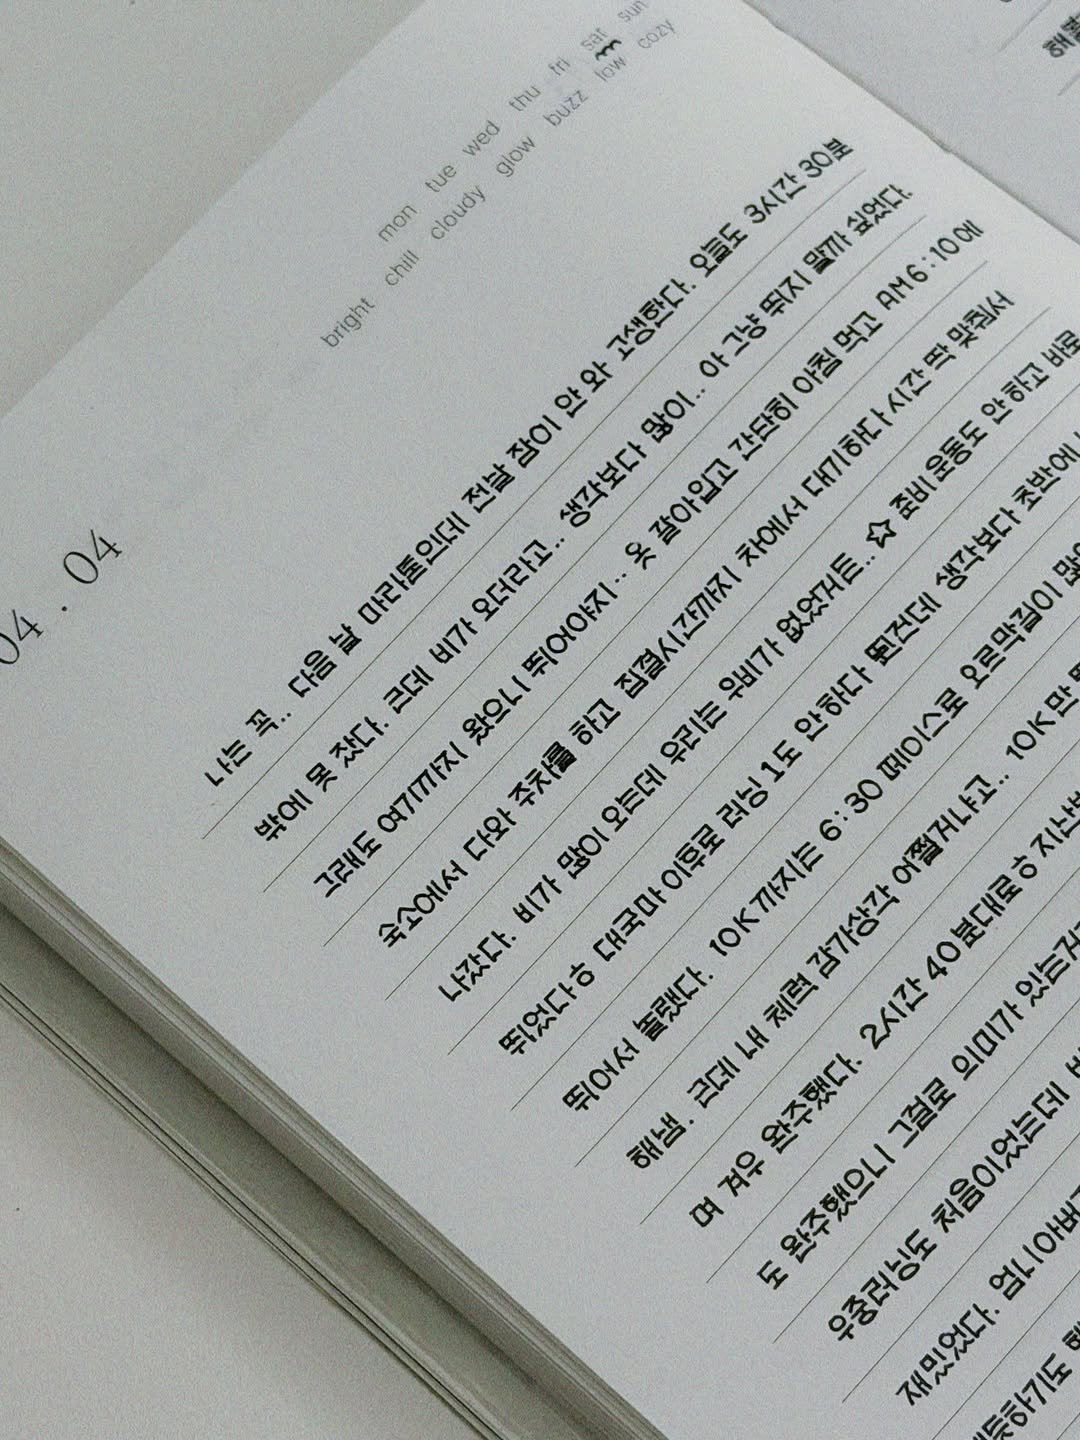 mon tue wed thu fri sat sun
bright chill cloudy glow buzz low cozy
04 . 04
나는 꼭.. 다음 날 마라톤인데 전날 잠이 안 와 고생한다. 오늘도 3시간 30분
밖에 못 잤다. 근데 비가 오더라고.. 생각보다 많이.. 아 그냥 뛰지 말까 싶었다.
그래도 여기까지 왔으니 뛰어야지.. 옷 갈아입고 간단히 아침 먹고 AM 6:10에
숙소에서 다와 주차를 하고 집결시간까지 차에서 대기하다 시간 딱 맞춰서
나갔다. 비가 많이 오는데 우리는 우비가 없었거든.. ☆ 준비운동도 안 하고 바로
뛰었다ㅎ 대국마 이후로 러닝 1도 안 하다 뛴건데 생각보다 초반에
뛰어서 놀랬다. 10K까지는 6:30 페이스로 오르막길이
해냄. 근데 내 체력 감가상각 어쩔거냐고.. 10K만
며 겨우 완주했다. 2시간 40분대로ㅎ
도 완주했으니 그걸로 의미가
우중러닝도 처음이었는데
재밌었다.